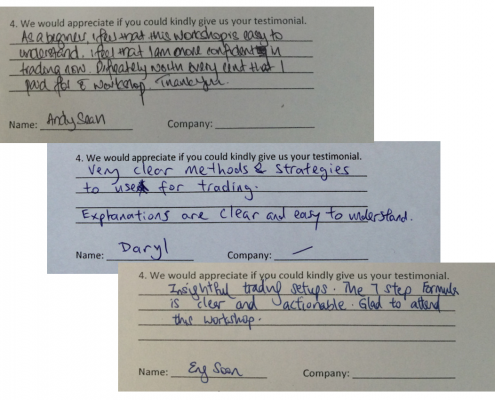 4. We would appreciate if you could kindly give us your testimonial.
As a beginner, i feel that this workshop is easy to
understand. i feel that I am more confident in
trading now. Difinately worth every cent that I
paid for workshop Thank you.
Name: Andy Sean Company:
4. We would appreciate if you could kindly give us your testimonial.
Very clear methods & strategies
to use for trading.
Explanations are clear and easy to understand.
Name: Daryl Company: —
4. We would appreciate if you could kindly give us your testimonial.
Insightful trading setups. The 7 step formula
is clear and actionable. Glad to attend
this workshop.
Name: Soon Company: